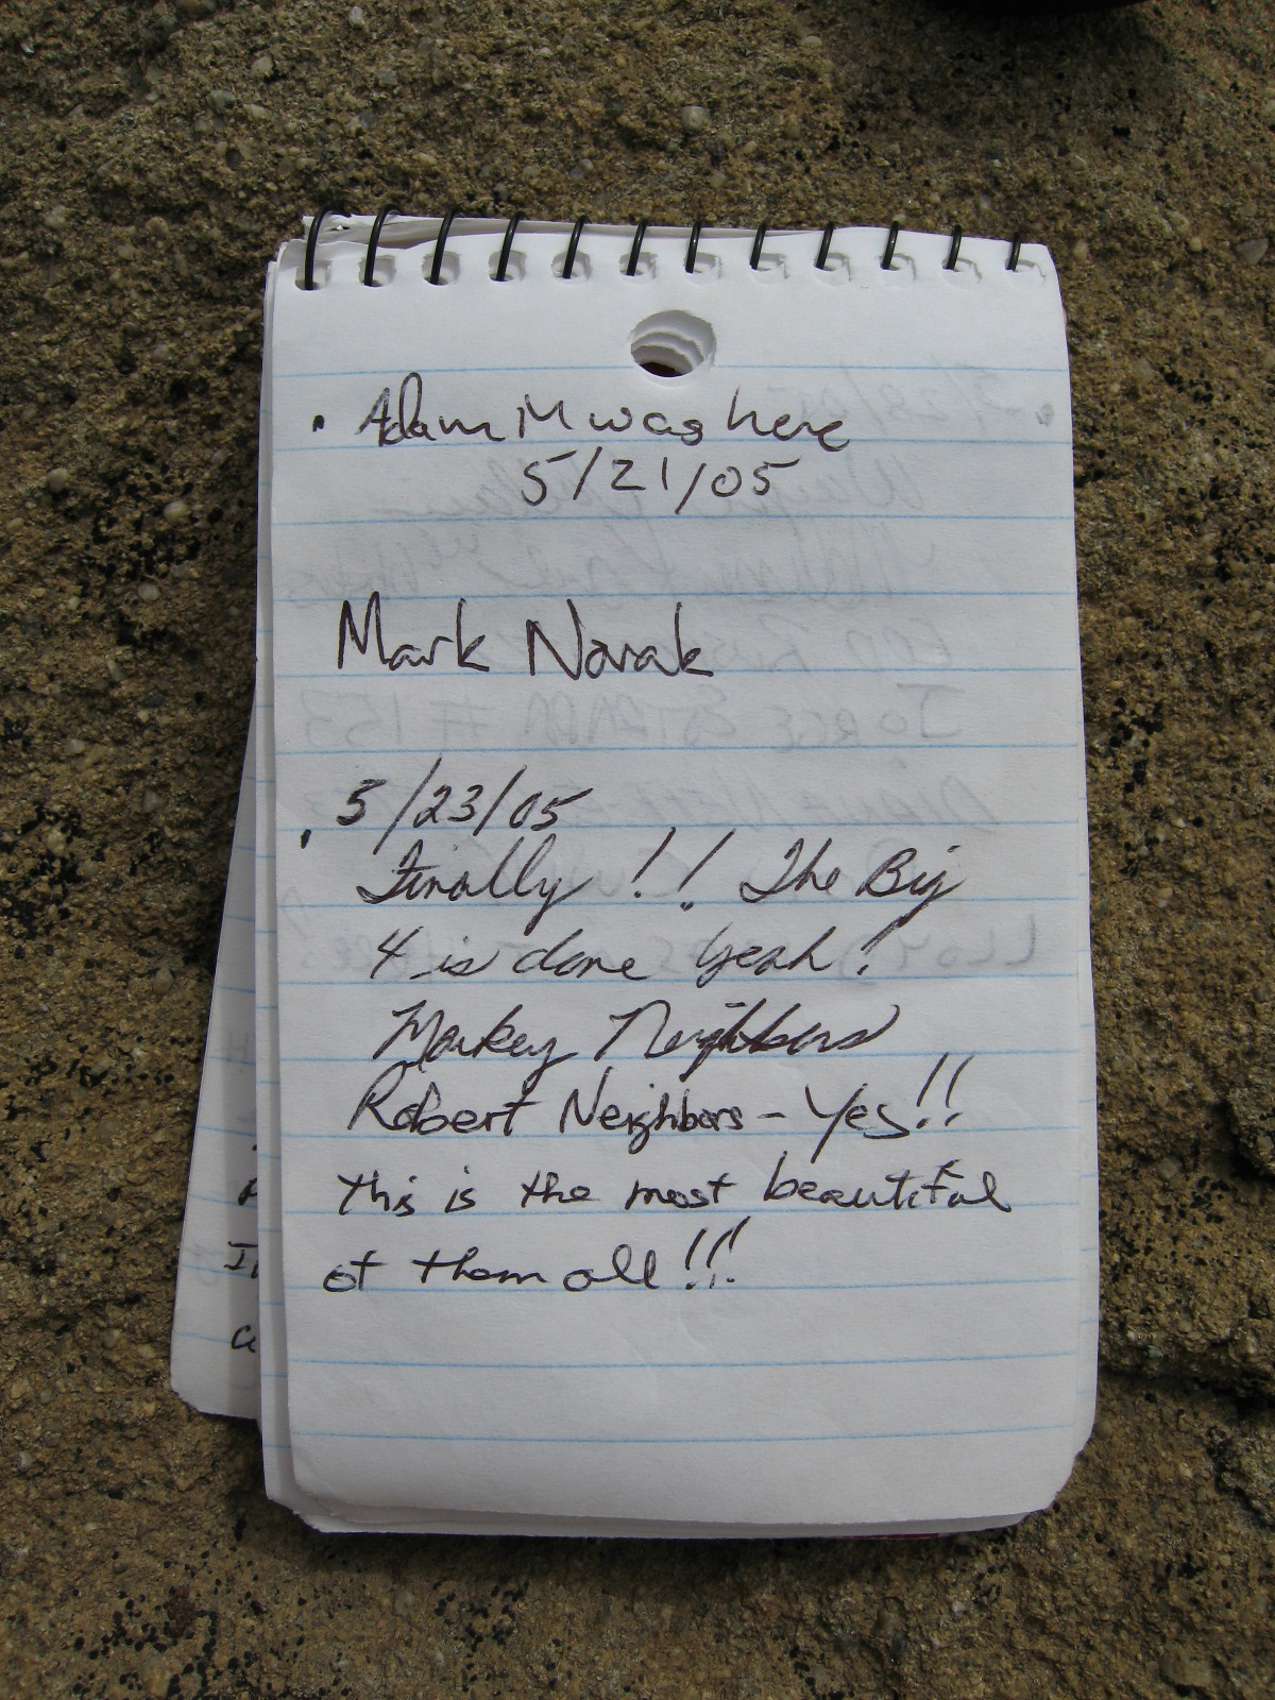 • Adam M was here
5/21/05
Mark Novak
• 5/23/05
Finally!! The Big
4 is done yeah!
Markey Neighbors
Robert Neighbors - Yes!!
this is the most beautiful
of them all!!!